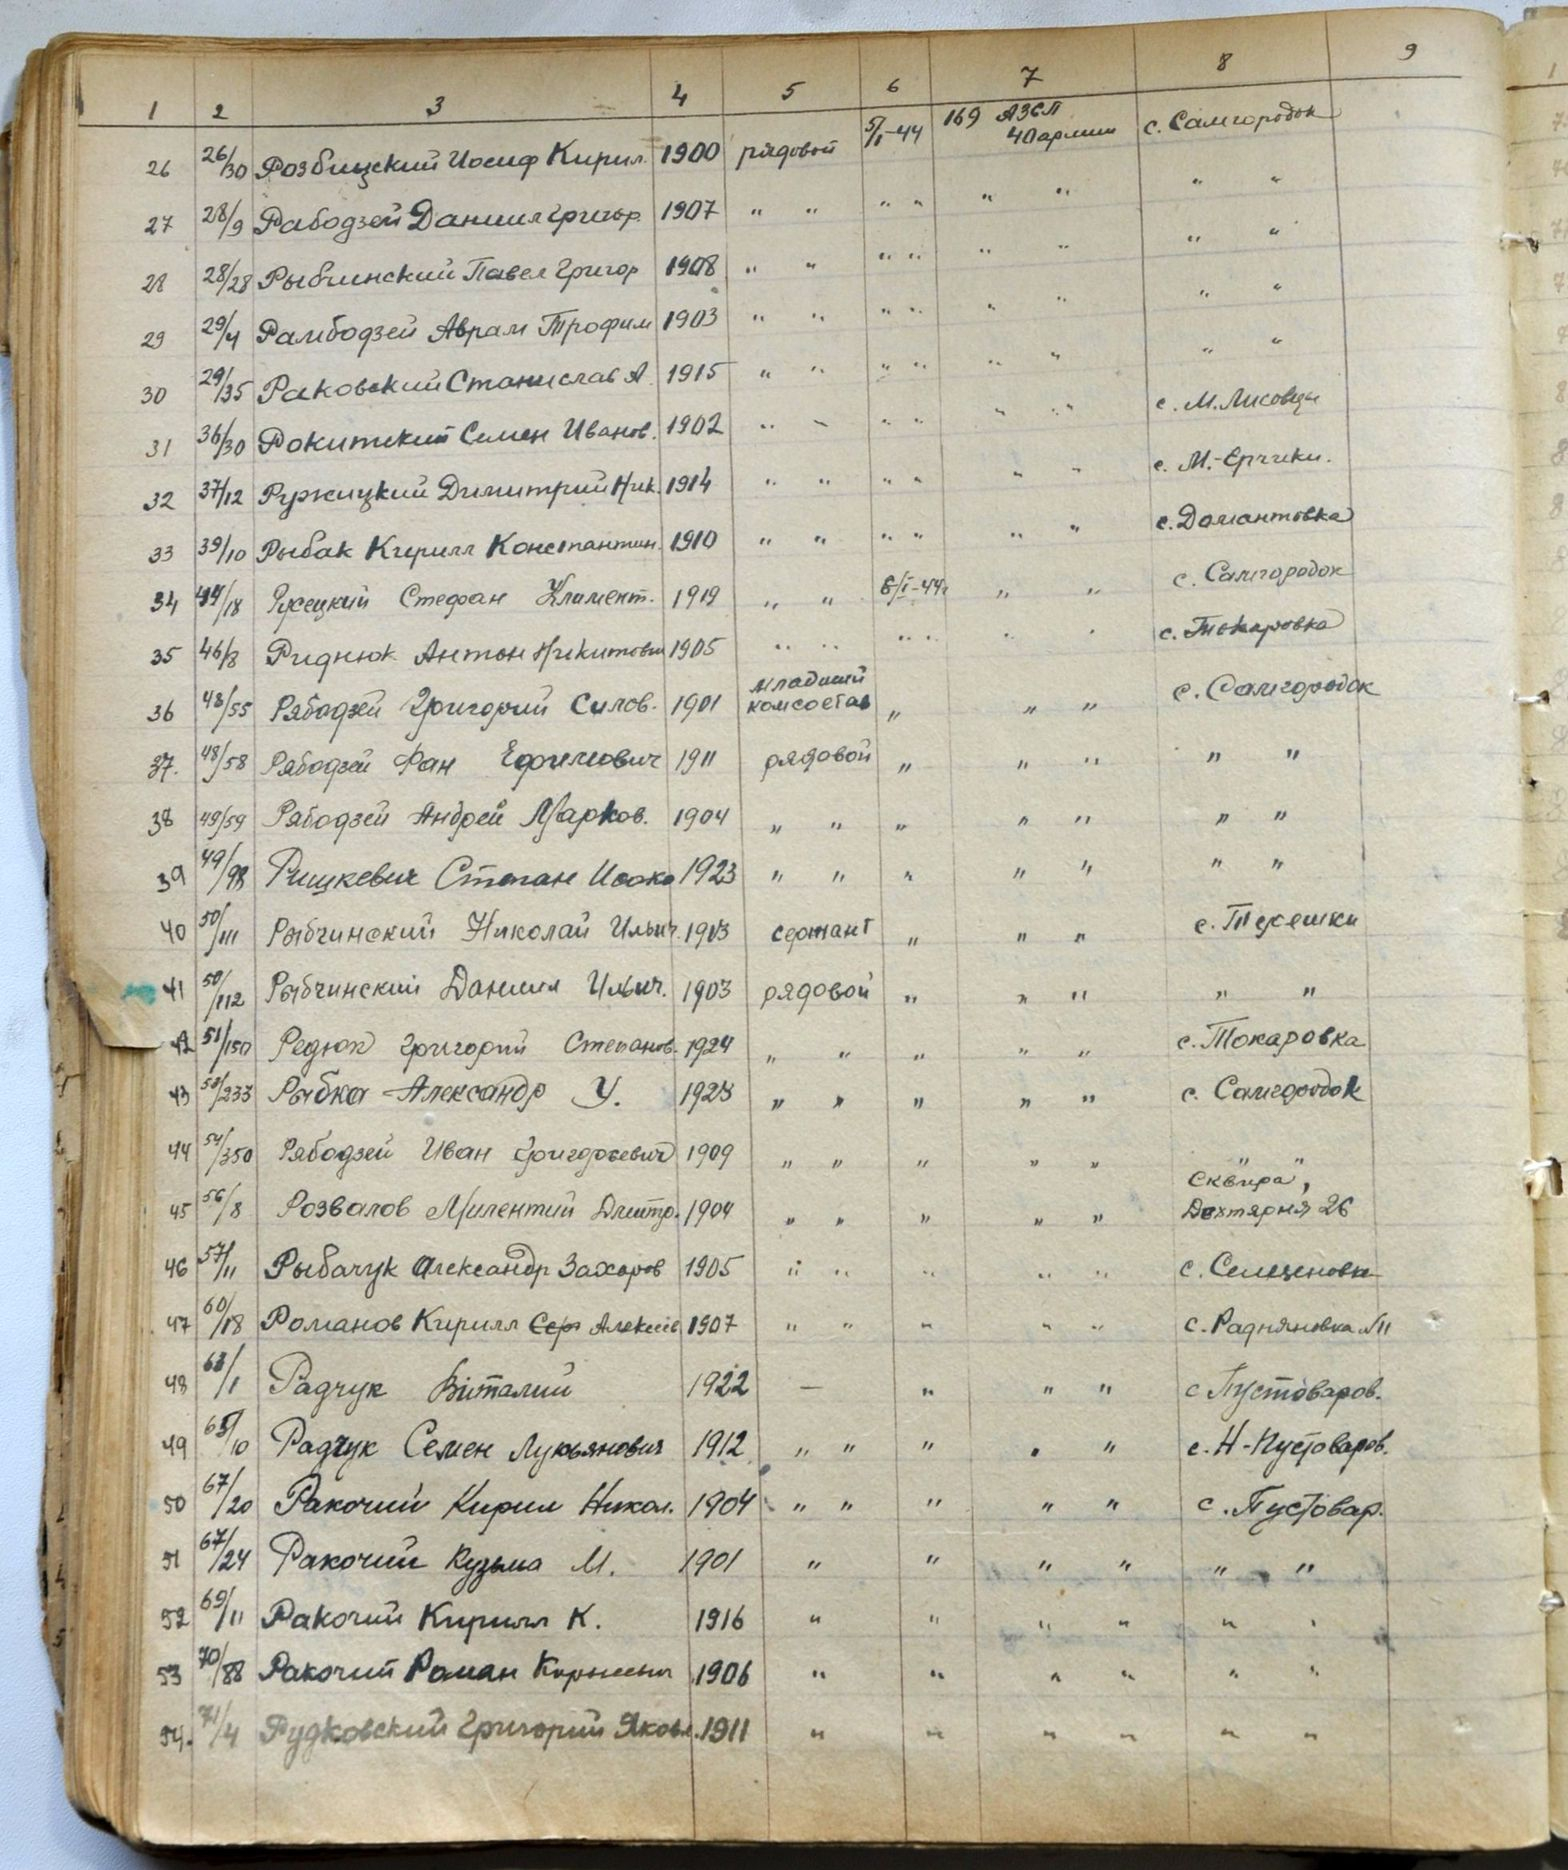 1 2 3 4 5 6 7 8 9
26 26/30 Розбицский Иосиф Кирил. 1900 рядовой 5/I-44 169 АЗСП 40 армии с. Самгородок
27 28/9 Рабодзей Даниил Григор. 1907 " " " " " " " "
28 28/28 Рыбчинский Павел Григор 1908 " " " " " " " "
29 29/4 Рамбодзей Аврам Трофим 1903 " " " " " " " "
30 29/35 Раковский Станислав А. 1915 " " " " " " " "
31 36/30 Рокитский Семен Иванов. 1902 " " " " " " с. М. Лисовцы
32 37/12 Ружицкий Димитрий Ник. 1914 " " " " " " с. М.-Ерчики.
33 39/10 Рыбак Кирилл Константин. 1910 " " " " " " с. Домантовка
34 44/18 Русецкий Стефан Климент. 1919 " " 6/I-44г " " с. Самгородок
35 46/8 Риднюк Антон Никитович 1905 " " " " " " с. Токаровка
36 48/55 Рябодзей Григорий Силов. 1901 младший комсостав " " " с. Самгородок
37. 48/58 Рябодзей Фан Ефимович 1911 рядовой " " " " "
38 49/59 Рябодзей Андрей Марков. 1904 " " " " " " "
39 49/98 Ришкевич Степан Исако 1923 " " " " " " "
40 50/111 Рыбчинский Николай Ильич. 1913 сержант " " " с. Тхоешки
41 50/112 Рыбчинский Даниил Ильич. 1903 рядовой " " " " "
42 51/150 Редюк Григорий Степанов. 1924 " " " " " с. Токаровка
43 50/233 Рыбка Александр У. 1923 " " " " " с. Самгородок
44 54/350 Рябодзей Иван Григорьевич 1909 " " " " " " "
45 56/8 Розвалов Милентий Дмитр. 1904 " " " " " Сквира, Дехтярня 26
46 57/11 Рыбачук Александр Захаров 1905 " " " " " с. Селезеновка
47 60/18 Романов Кирилл Сер Алексеев 1907 " " " " " с. Радняновка №11
48 63/1 Радчук Виталий 1922 — " " " с Пустоваров.
49 65/10 Радчук Семен Лукьянович 1912 " " " " " с. Н-Пустоваров.
50 67/20 Ракочий Кирил Никол. 1904 " " " " " с. Пустовар.
51 67/24 Ракочий Кузьма М. 1901 " " " " " "
52 69/11 Ракочий Кирилл К. 1916 " " " " " "
53 70/88 Ракочий Роман Корнеевич 1906 " " " " " "
54. 71/4 Рудковский Григорий Яковл. 1911 " " " " " "